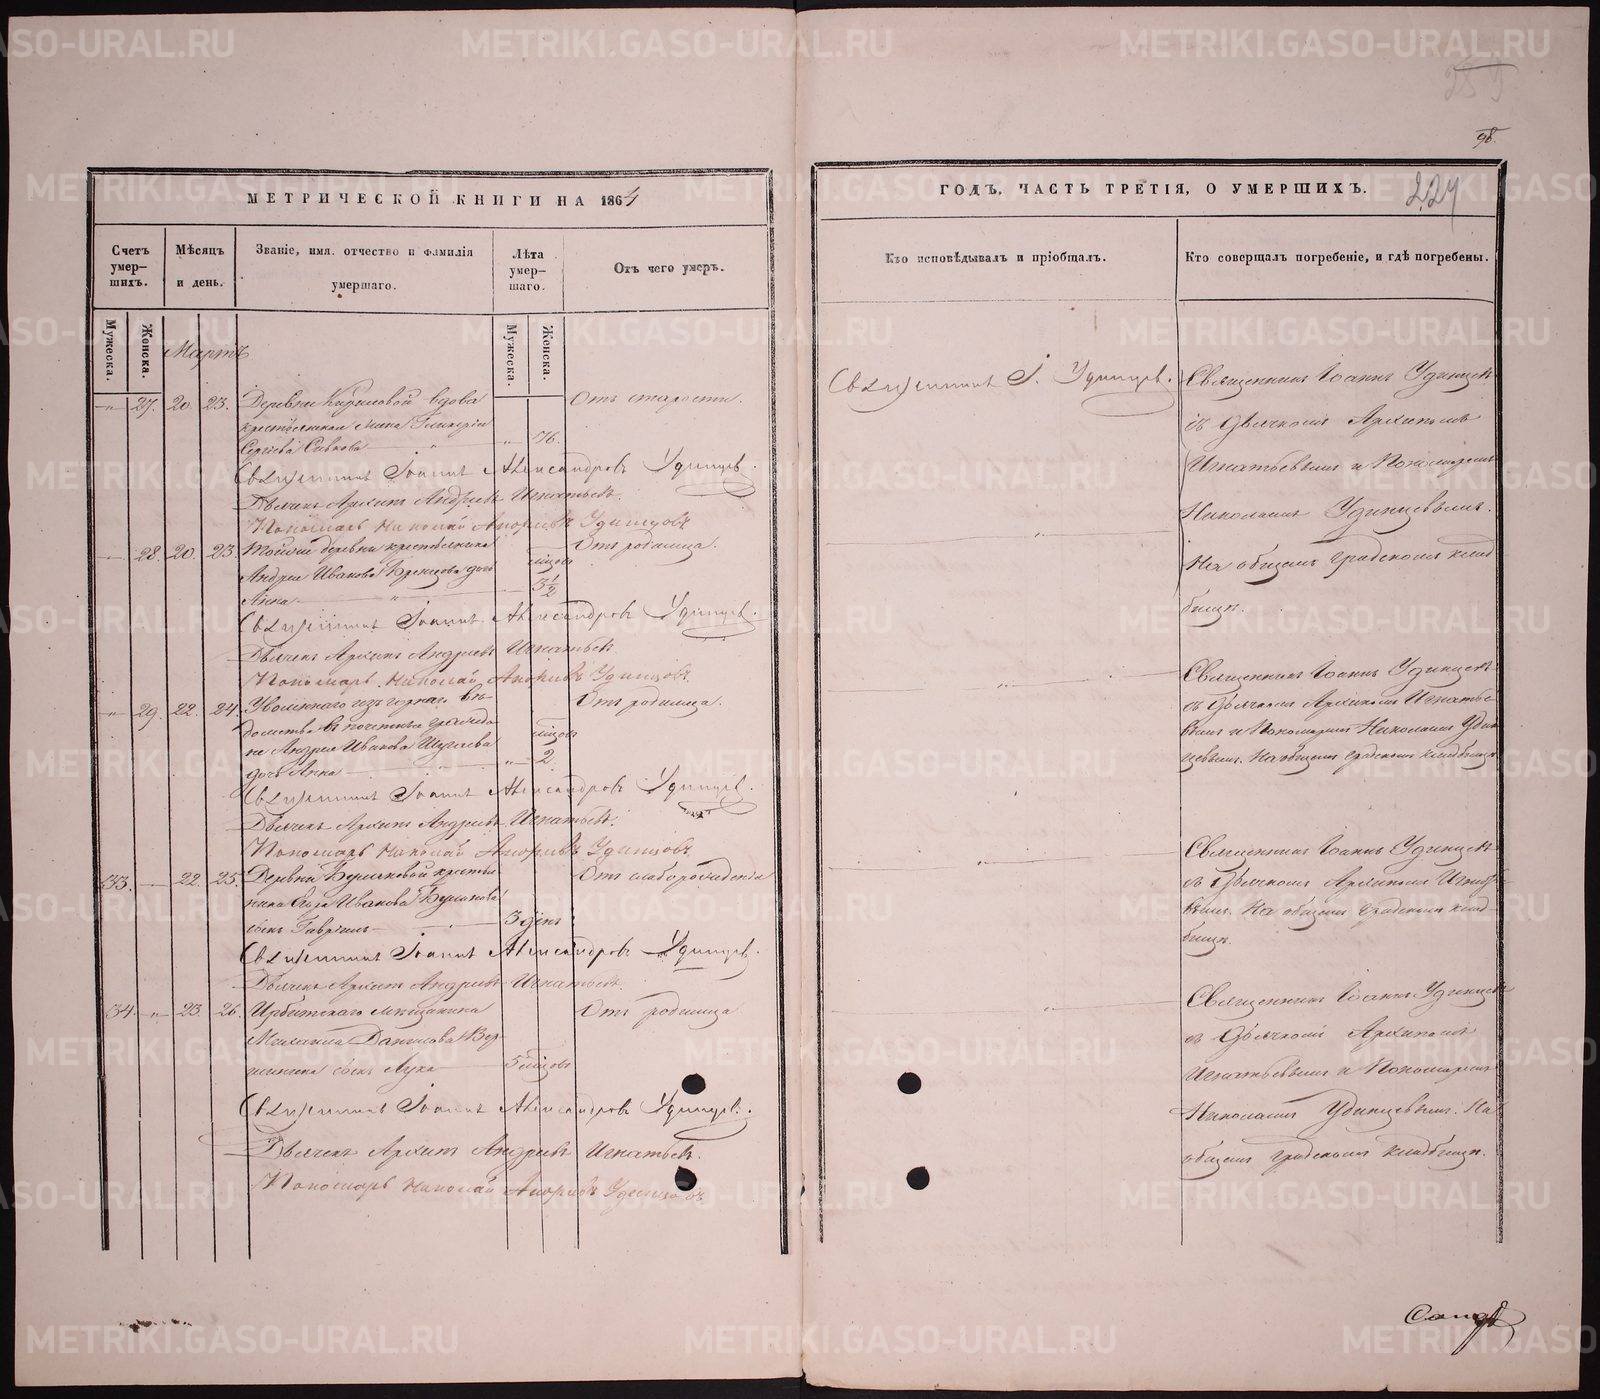 METRIKI.GASO-URAL.RU
98.
МЕТРИЧЕСКОЙ КНИГИ НА 1864
Счетъ умер–шихъ.
Мѣсяцъ и день.
Званіе, имя, отчество и фамилія умершаго.
Лѣта умер–шаго.
Отъ чего умеръ.
Мужеска.
Женска.
Мужеска.
Женска.
Мартъ
27. 20. 23. Деревни Кириловой вдова Отъ старости.
76.
Сергѣева
Священникъ Іоаннъ Александровъ Удинцев.
Дьячекъ Архипъ Андреевъ Игнатьевъ.
Пономарь Николай Андреевъ Удинцовъ
28. 20. 23. Тойже деревни крестьянина Отъ родимца.
Андрея Иванова дочь мѣсцов
Анна 3 1/2
Священникъ Іоаннъ Александровъ Удинцев.
Дьячекъ Архипъ Андреевъ Игнатьевъ
Пономарь Николай Андреевъ Удинцовъ
29. 22. 24. Уволеннаго изъ горнаго вѣ– Отъ родимца.
домства
Андрея Иванова мѣсцов
дочь Анна 2
Священникъ Іоаннъ Александровъ Удинцев.
Дьячекъ Архипъ Андреевъ Игнатьевъ.
Пономарь Николай Андреевъ Удинцовъ
33. 22. 25. Деревни крестья Отъ слаборожденія
нина Иванова
сынъ Гавріилъ 3 дня
Священникъ Іоаннъ Александровъ Удинцев.
Дьячекъ Архипъ Андреевъ Игнатьевъ.
34. 23. 26. Ирбитскаго мѣщанина Отъ родимца
Михаила Данилова
сынъ Лука 5 мѣсцов
Священникъ Іоаннъ Александровъ Удинцев.
Дьячекъ Архипъ Андреевъ Игнатьевъ.
Пономарь Николай Андреевъ Удинцовъ
ГОДЪ, ЧАСТЬ ТРЕТІЯ, О УМЕРШИХЪ. 224
Кто исповѣдывалъ и пріобщалъ.
Кто совершалъ погребеніе, и гдѣ погребены.
Священникъ І. Удинцев.
Священникъ Іоаннъ Удинцевъ
съ дьячкомъ Архипомъ
Игнатьевымъ и Пономаремъ
Николаемъ Удинцевымъ.
На общемъ градскомъ клад
бищѣ.
Священникъ Іоаннъ Удинцевъ
съ дьячкомъ Архипомъ Игнатье
вымъ и Пономаремъ Николаемъ Удин
цевымъ. На общемъ градскомъ кладбищѣ
Священникъ Іоаннъ Удинцевъ
съ дьячкомъ Архипомъ Игнатье
вымъ. На общемъ градскомъ клад–
бищѣ.
Священникъ Іоаннъ Удинцевъ
съ дьячкомъ Архипомъ
Игнатьевымъ и Пономаремъ
Николаемъ Удинцевымъ. На
общемъ градскомъ кладбищѣ.